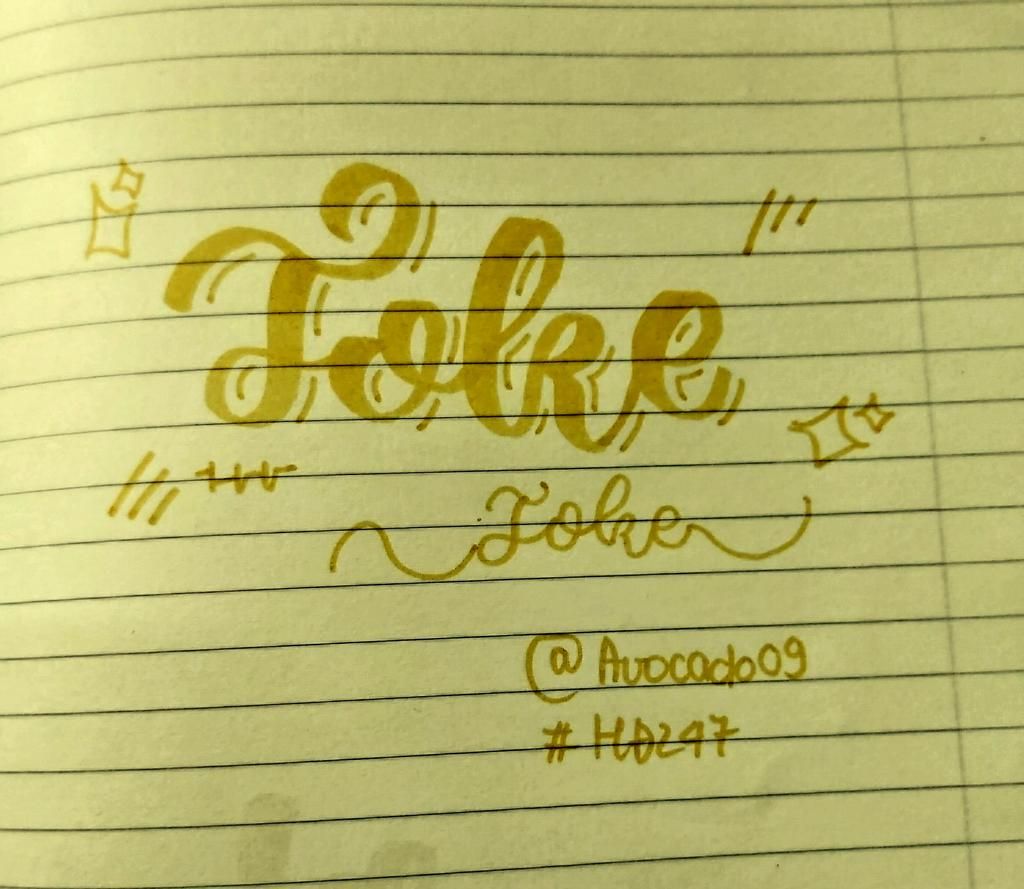 Joke
Joke
@Avocado09
#HD247